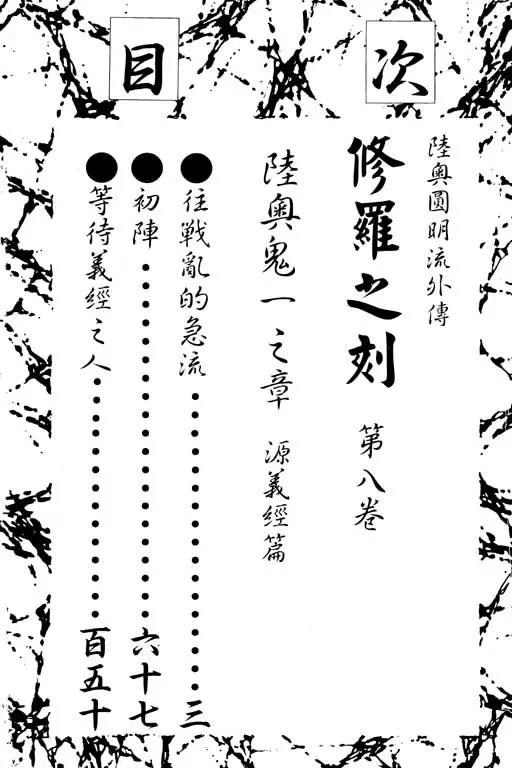 目次
陸奥圓明流外傳
修羅之刻 第八卷
陸奥鬼一之章 源義經篇
●往戰亂的急流・・・・・・・・・・・・・三
●初陣・・・・・・・・・・・・・・・・・六十七
●等待義經之人・・・・・・・・・・・・・百五十